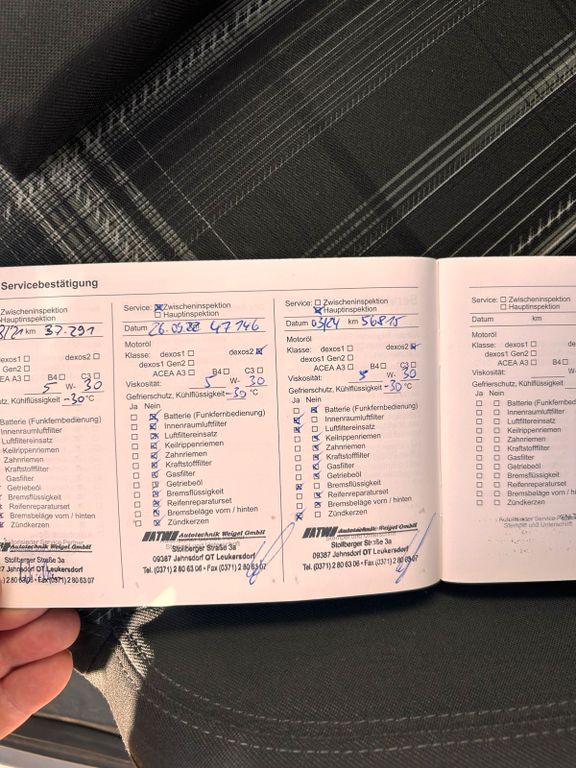 Servicebestätigung
/21 km 37.291
dexos2
C3
5 W- 30
Kühlflüssigkeit -30 °C
Batterie (Funkfernbedienung)
Innenraumluftfilter
Luftfiltereinsatz
Keilrippenriemen
Zahnriemen
Kraftstofffilter
Gasfilter
Getriebeöl
Bremsflüssigkeit
Reifenreparaturset
Bremsbeläge vorn / hinten
Zündkerzen
Autotechnik Weigel GmbH
Stollberger Straße 3a
Jahnsdorf OT Leukersdorf
2 80 63 06 • Fax (0371) 2 80 63 07
Service: Zwischeninspektion
Hauptinspektion
Datum 47.746
Motoröl
Klasse: dexos1 dexos2
dexos1 Gen2
ACEA A3 B4 C3
Viskosität: 5 W- 30
Gefrierschutz, Kühlflüssigkeit -30 °C
Ja Nein
Batterie (Funkfernbedienung)
Innenraumluftfilter
Luftfiltereinsatz
Keilrippenriemen
Zahnriemen
Kraftstofffilter
Gasfilter
Getriebeöl
Bremsflüssigkeit
Reifenreparaturset
Bremsbeläge vorn / hinten
Zündkerzen
ATW Autotechnik Weigel GmbH
Stollberger Straße 3a
09387 Jahnsdorf OT Leukersdorf
Tel. (0371) 2 80 63 06 • Fax (0371) 2 80 63 07
Service: Zwischeninspektion
Hauptinspektion
Datum 03/24 km 56815
Motoröl
Klasse: dexos1 dexos2
dexos1 Gen2
ACEA A3 B4 C3
Viskosität: 5 W- 30
Gefrierschutz, Kühlflüssigkeit -30 °C
Ja Nein
Batterie (Funkfernbedienung)
Innenraumluftfilter
Luftfiltereinsatz
Keilrippenriemen
Zahnriemen
Kraftstofffilter
Gasfilter
Getriebeöl
Bremsflüssigkeit
Reifenreparaturset
Bremsbeläge vorn / hinten
Zündkerzen
ATW Autotechnik Weigel GmbH
Stollberger Straße 3a
09387 Jahnsdorf OT Leukersdorf
Tel. (0371) 2 80 63 06 • Fax (0371) 2 80 63 07
Service: Zwischeninspektion
Hauptinspektion
Datum km
Motoröl
Klasse: dexos1
dexos1 Gen2
ACEA A3
Viskosität:
Gefrierschutz, Kühlflüssigkeit
Ja Nein
Batterie (Funkfernbedienung)
Innenraumluftfilter
Luftfiltereinsatz
Keilrippenriemen
Zahnriemen
Kraftstofffilter
Gasfilter
Getriebeöl
Bremsflüssigkeit
Reifenreparaturset
Bremsbeläge vorn / hinten
Zündkerzen
Autorisierter Service
Stempel und Unterschrift